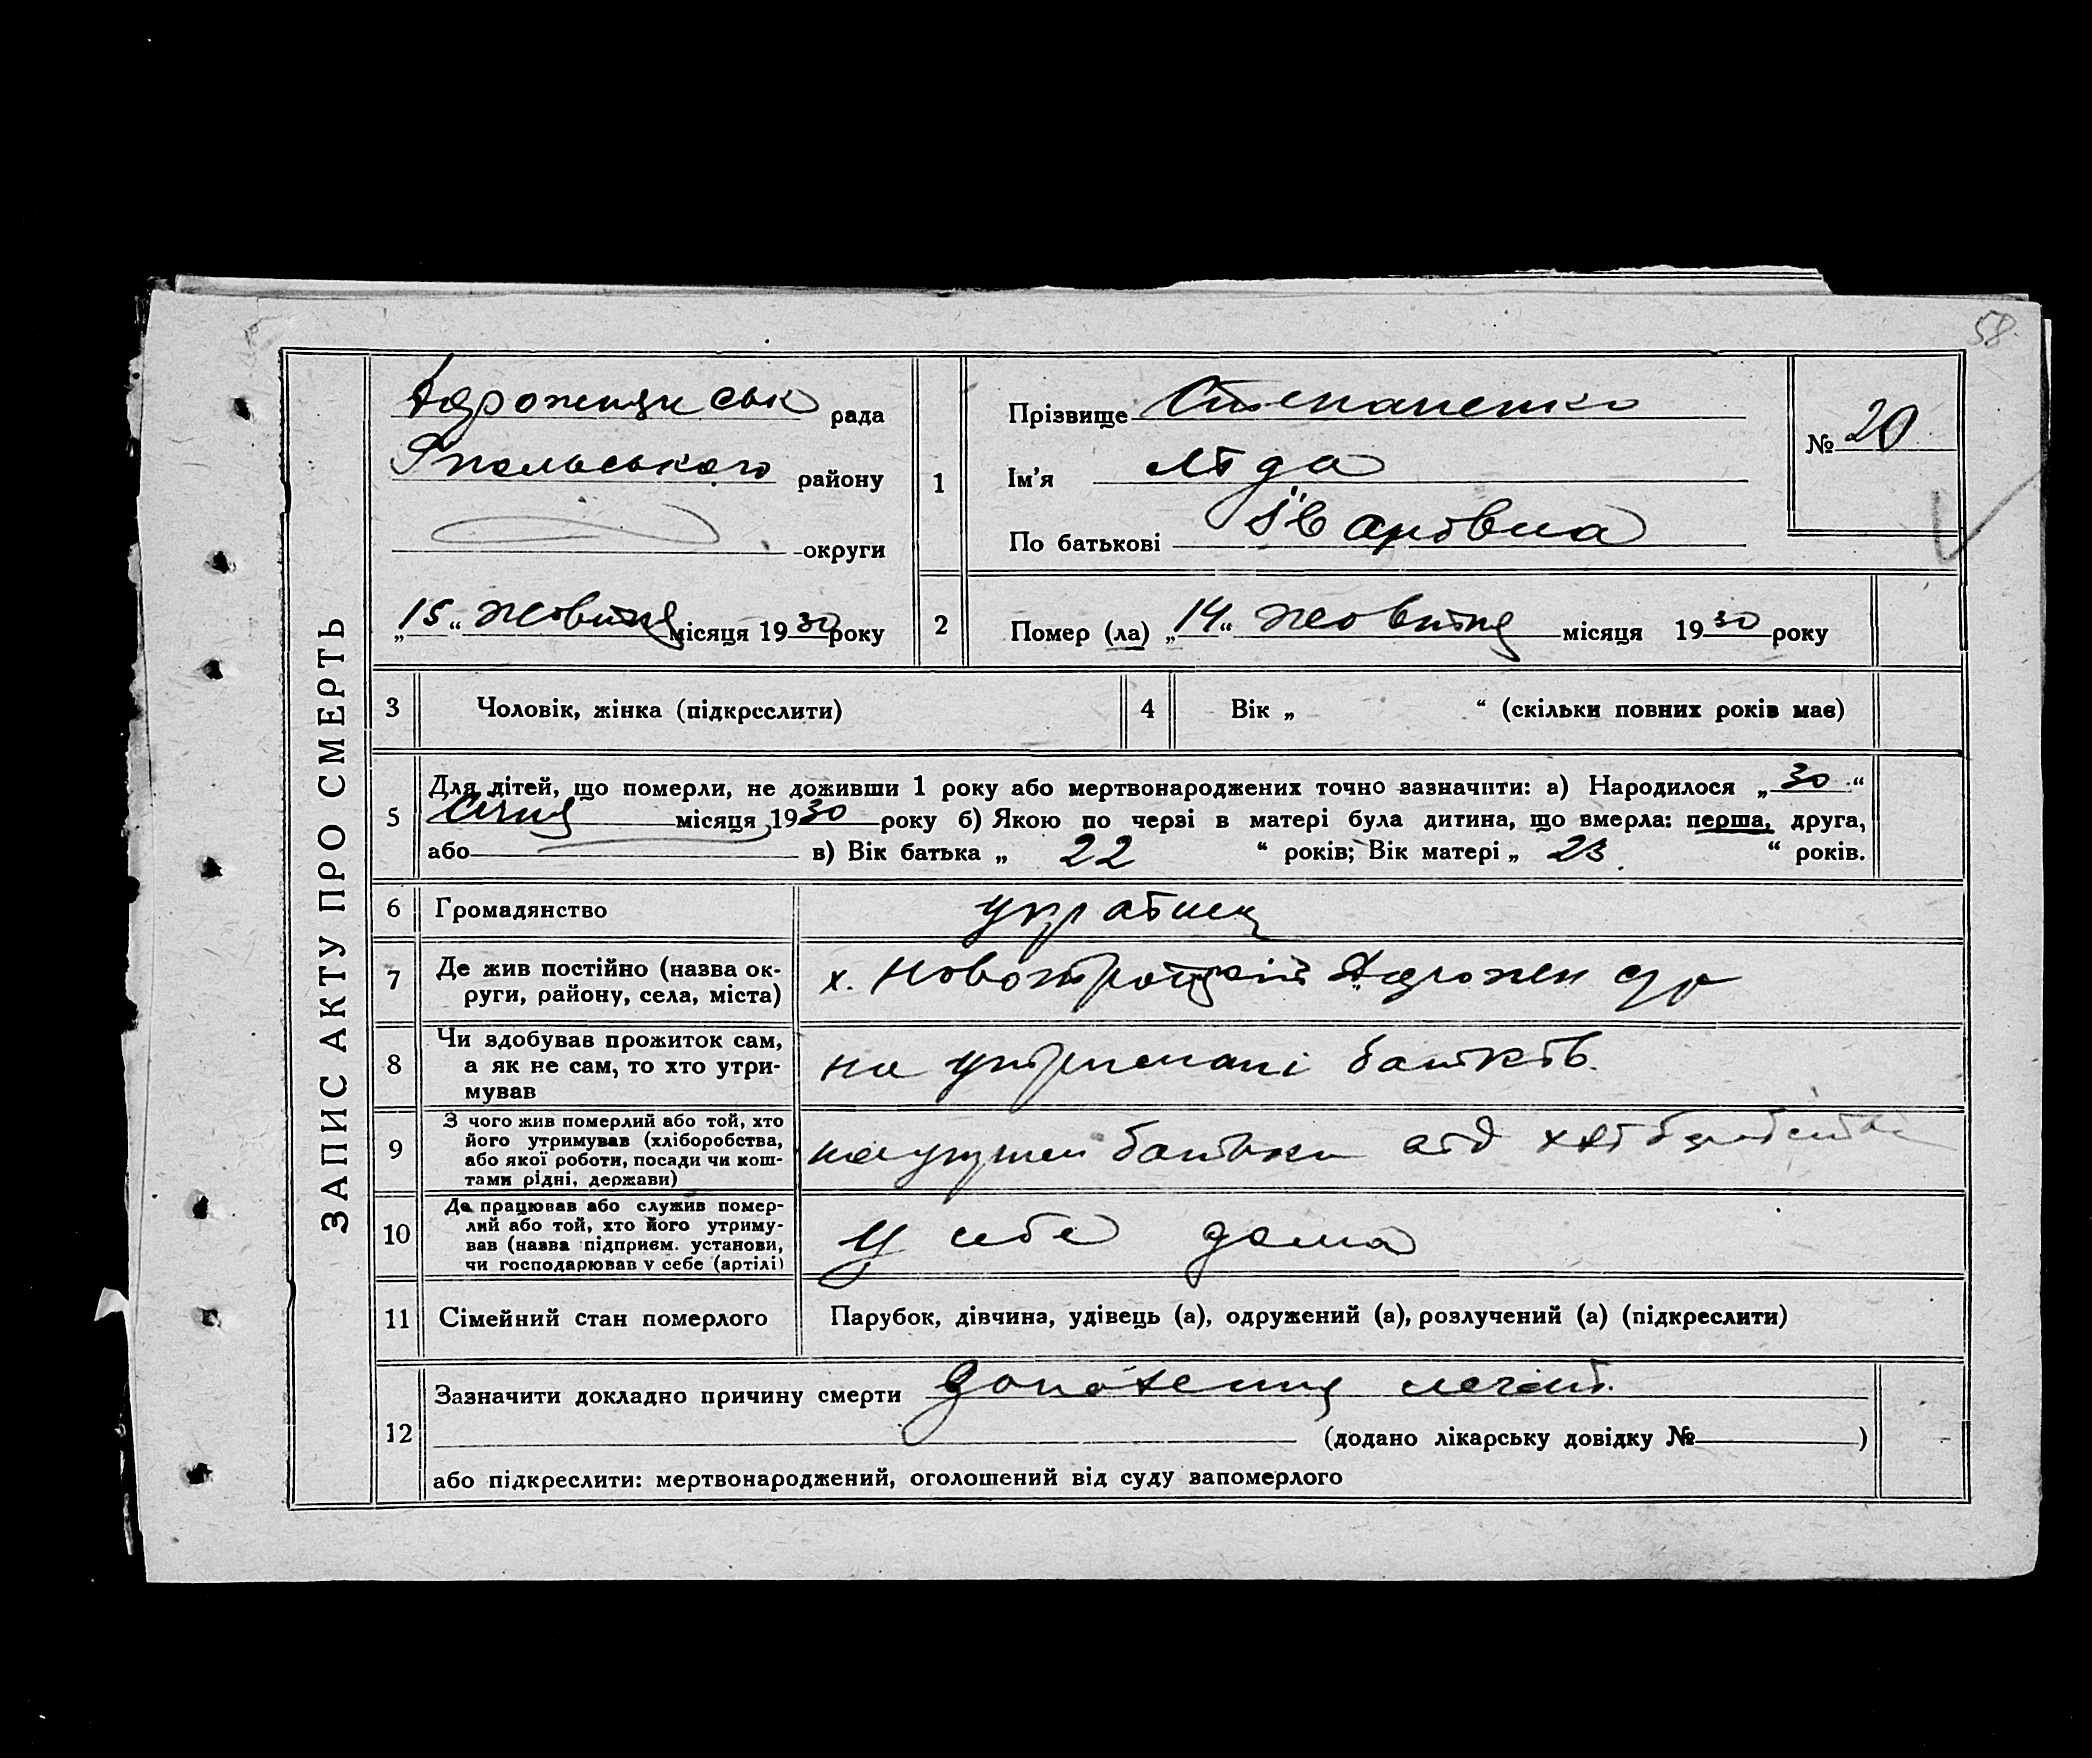 58
ЗАПИС АКТУ ПРО СМЕРТЬ
рада
району
округи
„15“ жовтня місяця 1930 року
1
Прізвище Степаненко
Ім'я Ліда
По батькові Івановна
№ 20
2
Помер (ла) „14“ жовтня місяця 1930 року
3 Чоловік, жінка (підкреслити)
4 Вік „ “ (скільки повних років має)
5 Для дітей, що померли, не доживши 1 року або мертвонароджених точно зазначити: а) Народилося „30“
Січня місяця 1930 року б) Якою по черві в матері була дитина, що вмерла: перша, друга,
або в) Вік батька „ 22 “ років; Вік матері „ 23 “ років.
6 Громадянство
7 Де жив постійно (назва ок-
руги, району, села, міста)
х. Новотроїцкій
8 Чи здобував прожиток сам,
а як не сам, то хто утри-
мував
на утримані батків.
9 З чого жив померлий або той, хто
його утримував (хліборобства,
або якої роботи, посади чи кош-
тами рідні, держави)
батьки від
10 Де працював або служив помер-
лий або той, хто його утриму-
вав (назва підприєм. установи,
чи господарював у себе (артілі)
У себе дома
11 Сімейний стан померлого
Парубок, дівчина, удівець (а), одружений (а), розлучений (а) (підкреслити)
12 Зазначити докладно причину смерти
(додано лікарську довідку № )
або підкреслити: мертвонароджений, оголошений від суду вапомерлого